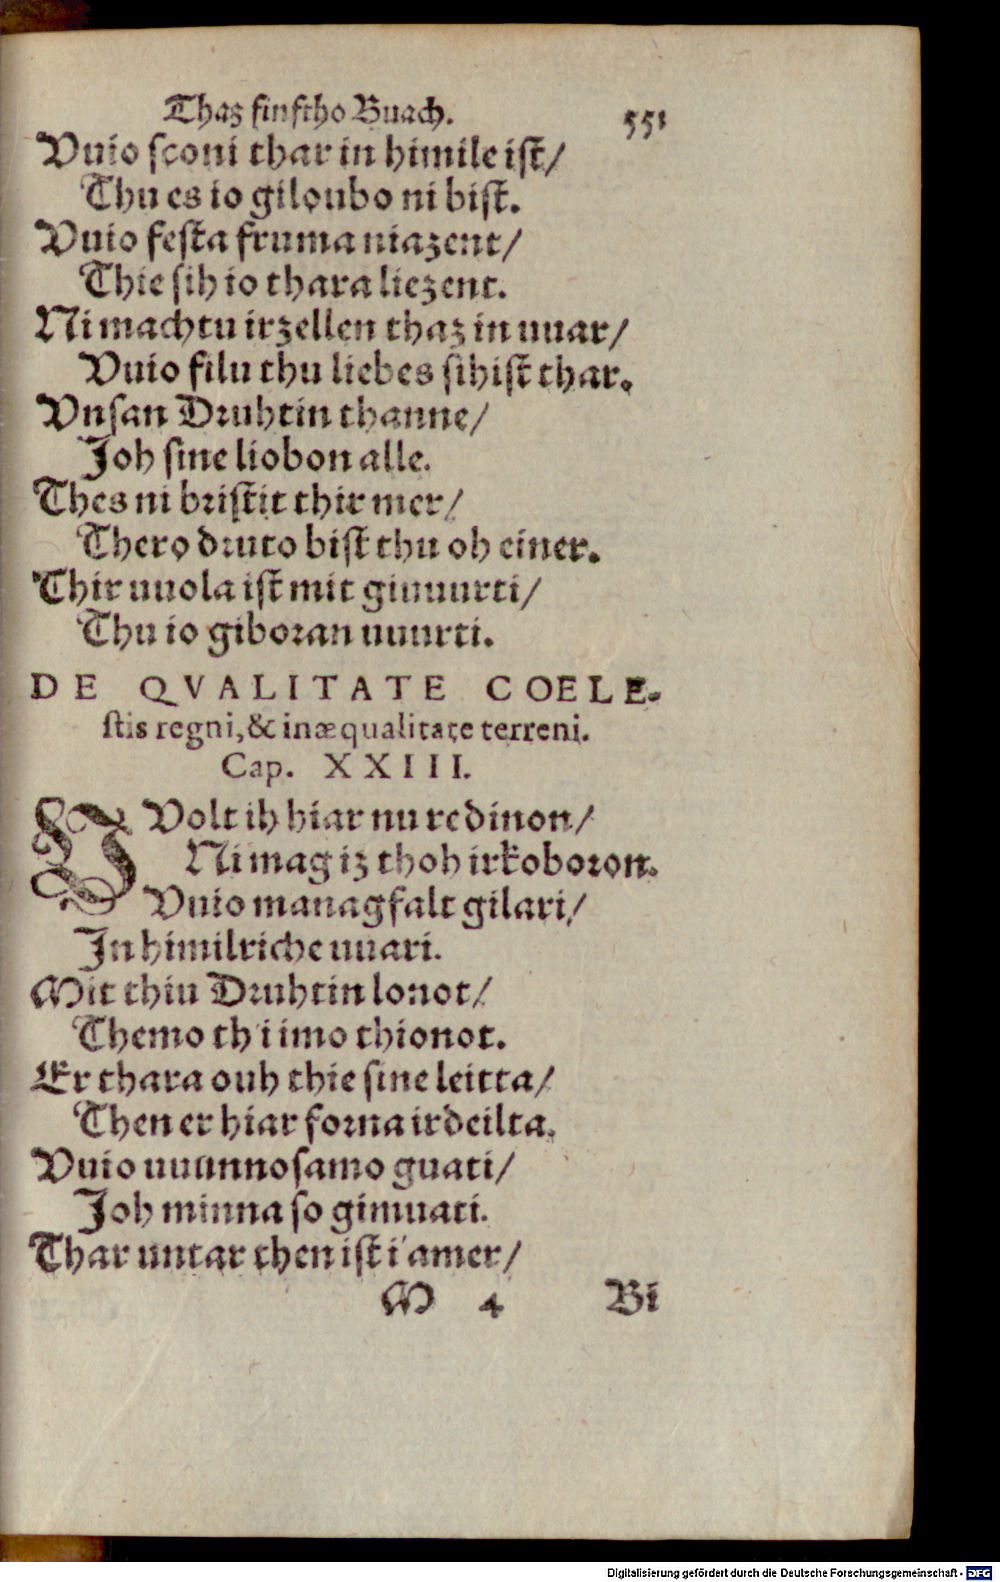 Thaz finftho Buach. 551
Vuio sconi thar in himile ist/
Thu es io giloubo ni bist.
Vuio festa fruma niazent/
Thie sih io thara liezent.
Ni machtu irzellen thaz in uuar/
Vuio filu thu liebes sihist thar.
Vnsan Druhtin thanne/
Joh sine liobon alle.
Thes ni bristit thir mer/
Thero druto bist thu oh einer.
Thir uuola ist mit giuuurti/
Thu io giboran uuurti.
DE QVALITATE COELE-
stis regni, & inæqualitate terreni.
Cap. XXIII.
VVolt ih hiar nu redinon/
Ni mag iz thoh irkoboron.
Vuio managfalt gilari/
In himilriche uuari.
Mit thiu Druhtin lonot/
Themo th'i imo thionot.
Er thara ouh thie sine leitta/
Then er hiar forna irdeilta.
Vuio uuunnosamo guati/
Joh minna so gimuati.
Thar untar then ist i'amer/
M 4 Bi
Digitalisierung gefördert durch die Deutsche Forschungsgemeinschaft - DFG